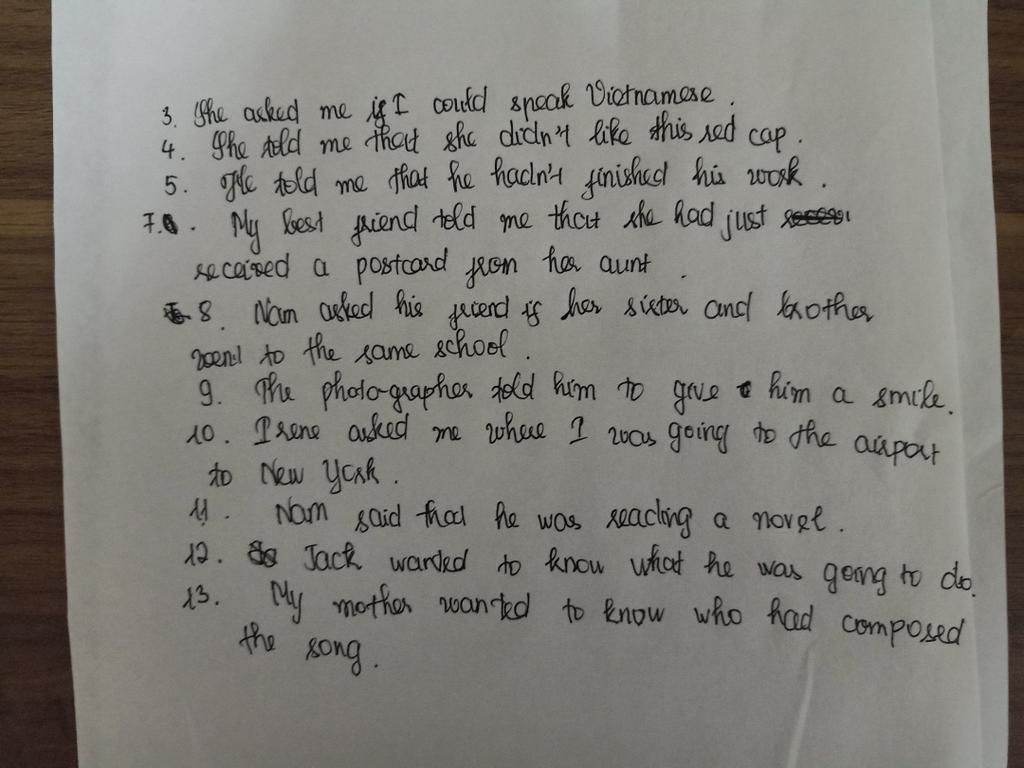 3. She asked me if I could speak Vietnamese.
4. She told me that she didn't like this red cap.
5. He told me that he hadn't finished his work.
7. My best friend told me that she had just
received a postcard from her aunt.
8. Nam asked his friend if her sister and brother
went to the same school.
9. The photo-grapher told him to give him a smile.
10. Irene asked me where I was going to the airport
to New York.
11. Nam said that he was reading a novel.
12. Jack wanted to know what he was going to do.
13. My mother wanted to know who had composed
the song.